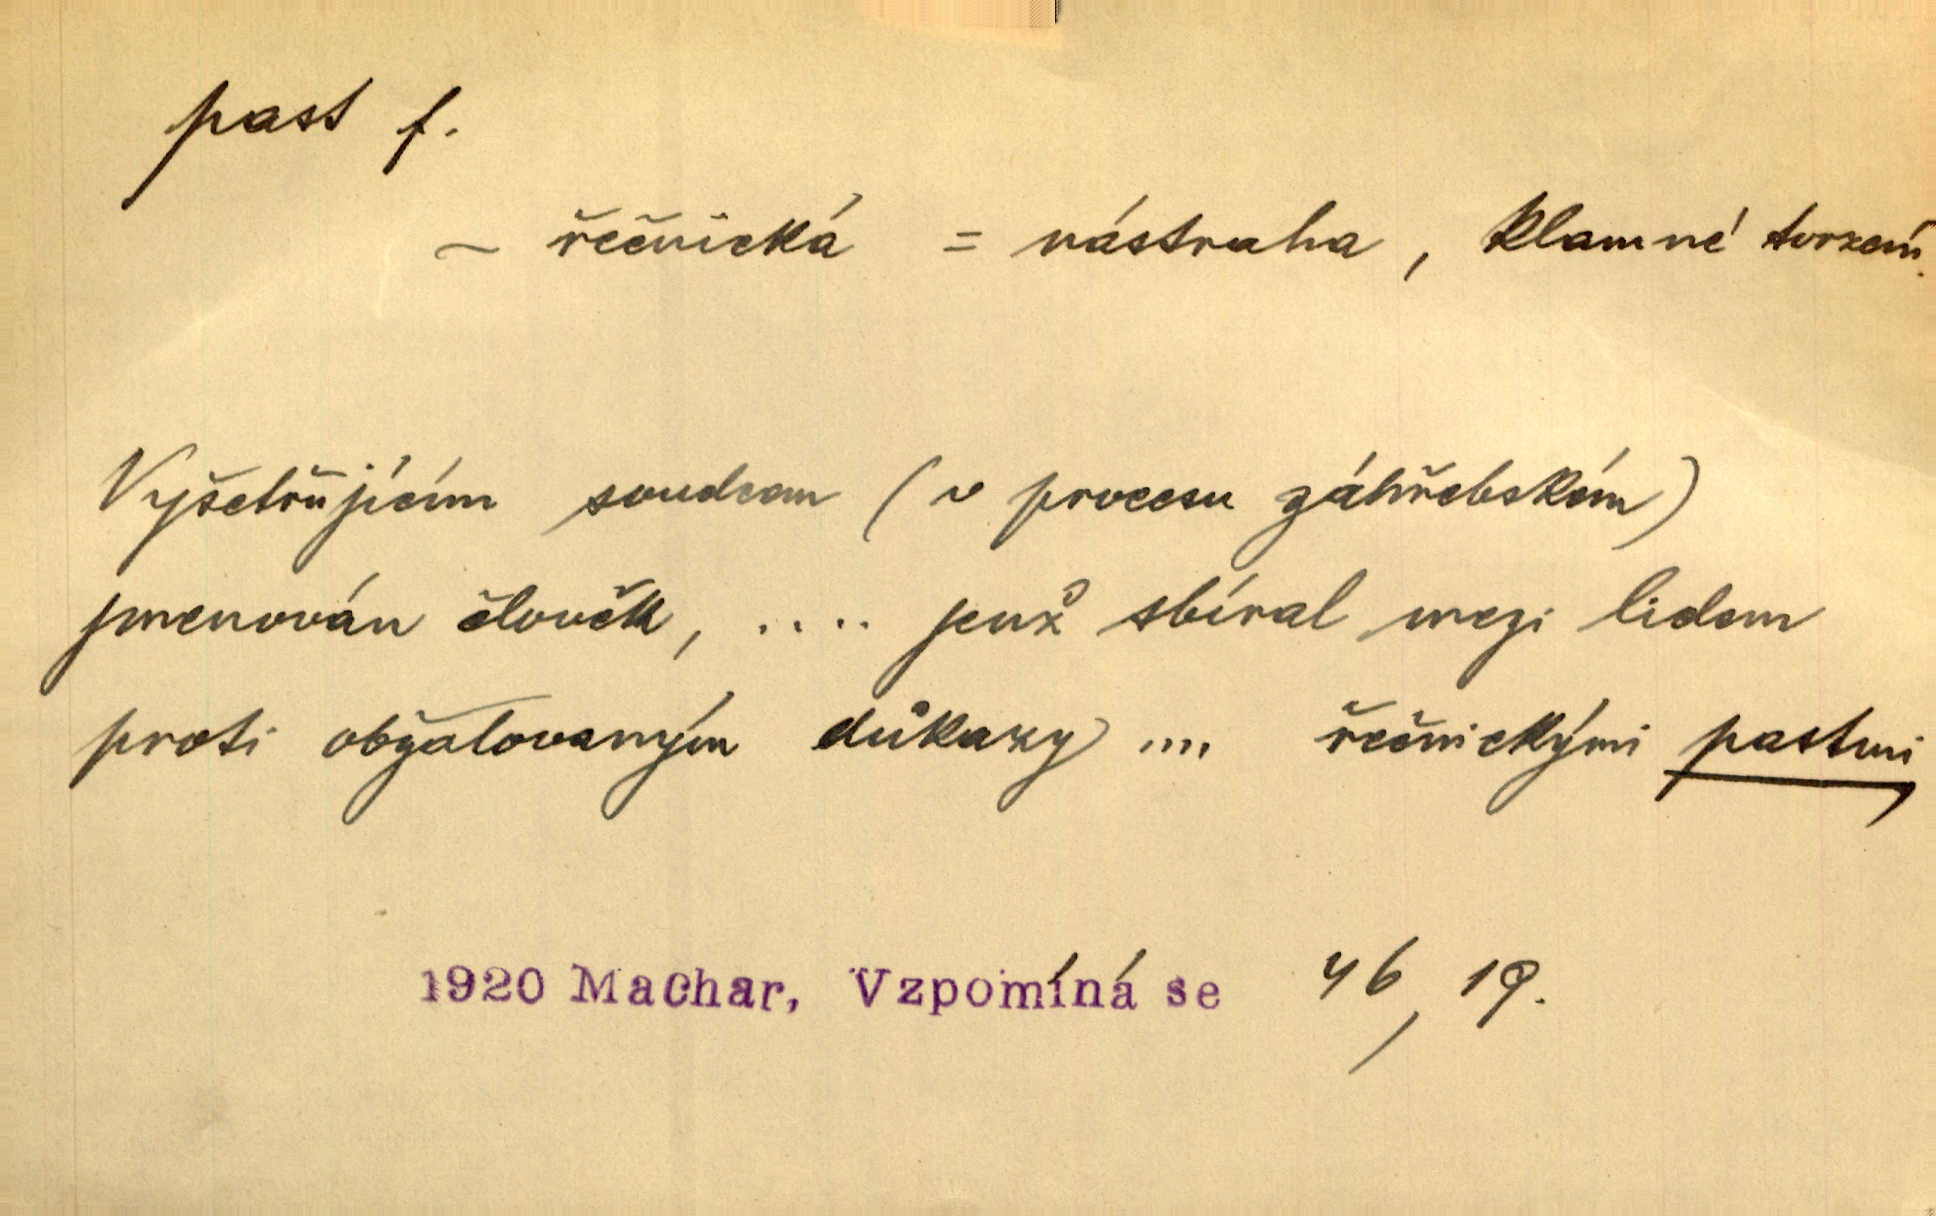 past f.
~ řečnická = nástraha, klamné tvrzení.
Vyšetřujícím soudcem (v procesu záhřebském)
jmenován člověk, .... jenž sbíral mezi lidem
proti obžalovaným důkazy .... řečnickými pastmi
1920 Machar, Vzpomíná se 46, 19.